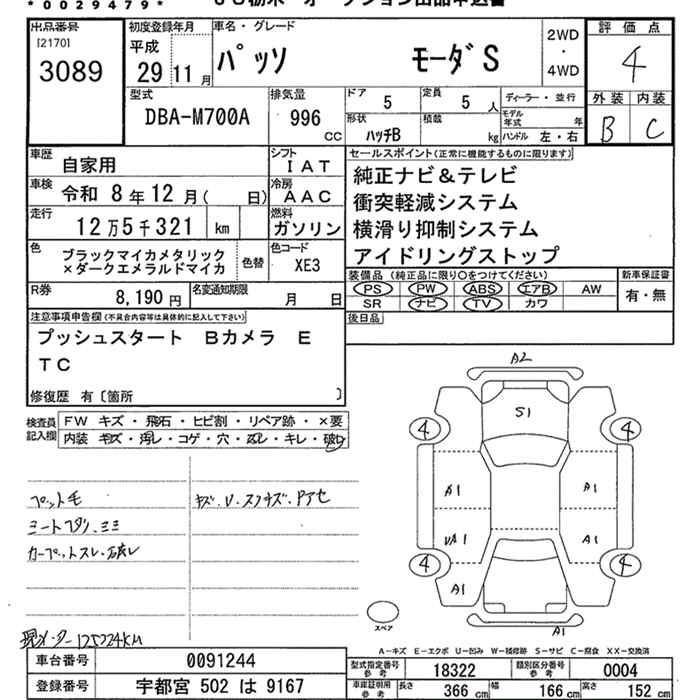 * 0 0 2 9 4 7 9 *
出品番号
[2170]
3089
初度登録年月
平成
29 11 月
車名・グレード
パッソ モーダS
2WD
・
4WD
評価点
4
外装 内装
B C
型式
DBA-M700A
排気量
996
cc
ドア 5
定員 5 人
形状
ハッチB
積載
kg
ディーラー・並行
モデル年式 年
ハンドル 左・右
車歴 自家用
シフト
I A T
車検 令和 8 年 12 月 ( 日)
冷房
A A C
走行 12 万 5 千 321 km
燃料
ガソリン
色 ブラックマイカメタリック
×ダークエメラルドマイカ
色替
色コード
XE3
R券 8,190 円
名変通知期限
月 日
セールスポイント(正常に機能するものに限ります)
純正ナビ&テレビ
衝突軽減システム
横滑り抑制システム
アイドリングストップ
装備品 (純正品に限り○をつけてください)
PS PW ABS エアB AW
SR ナビ TV カワ
新車保証書
有・無
後日品
注意事項申告欄(不具合内容等は具体的に記入して下さい)
プッシュスタート Bカメラ E
TC
修復歴 有〔箇所 〕
検査員
記入欄
FW キズ・飛石・ヒビ割・リペア跡・×要
内装 キズ・汚レ・コゲ・穴・スレ・キレ・破レ
ペット毛
シートフタン.ミミ
カーペットスレ.汚レ
キズ.U.スリキズ.Pアセ
現メーター125224KM
A2
S1
4
4
A1
A1
UA1
A1
4
4
A1
A1
スペア
A-キズ E-エクボ U-凹み W-補修跡 S-サビ C-腐食 XX-交換済
車台番号 0091244
登録番号 宇都宮 502 は 9167
型式指定番号
参考
18322
類別区分番号
参考
0004
車庫証明用
参考
長さ 366 cm
幅 166 cm
高さ 152 cm